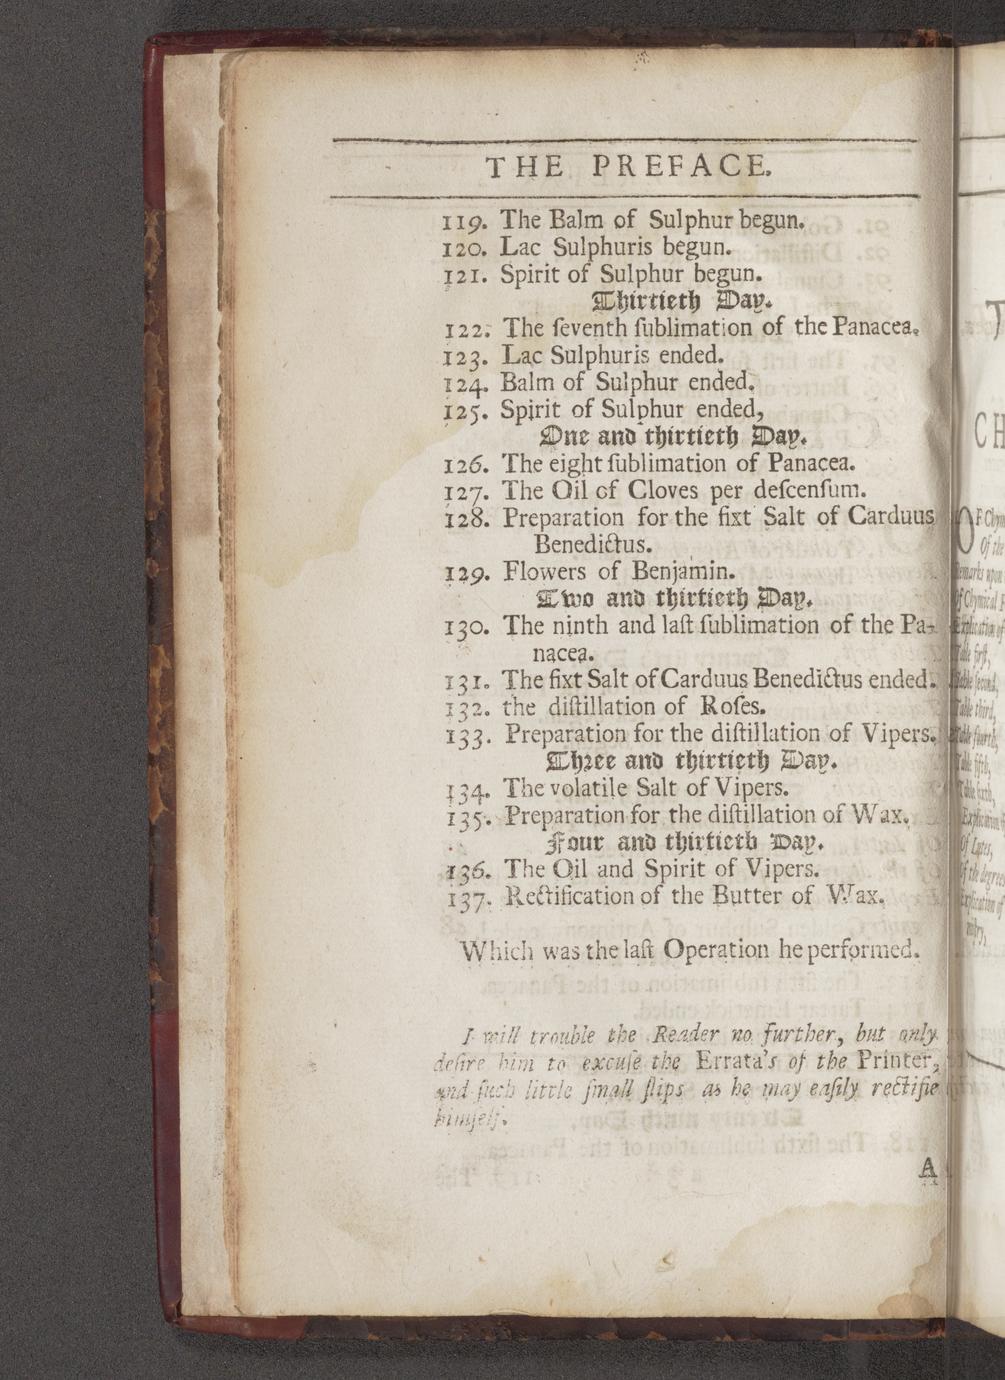 THE PREFACE.
119. The Balm of Sulphur begun.
120. Lac Sulphuris begun.
121. Spirit of Sulphur begun.
Thirtieth Day.
122. The ſeventh ſublimation of the Panacea.
123. Lac Sulphuris ended.
124. Balm of Sulphur ended.
125. Spirit of Sulphur ended,
One and thirtieth Day.
126. The eight ſublimation of Panacea.
127. The Oil of Cloves per deſcenſum.
128. Preparation for the fixt Salt of Carduus
Benedictus.
129. Flowers of Benjamin.
Two and thirtieth Day.
130. The ninth and laſt ſublimation of the Pa-
nacea.
131. The fixt Salt of Carduus Benedictus ended.
132. the diſtillation of Roſes.
133. Preparation for the diſtillation of Vipers.
Three and thirtieth Day.
134. The volatile Salt of Vipers.
135. Preparation for the diſtillation of Wax.
Four and thirtieth Day.
136. The Oil and Spirit of Vipers.
137. Rectification of the Butter of Wax.
Which was the laſt Operation he performed.
I will trouble the Reader no further, but only
deſire him to excuſe the Errata's of the Printer,
and ſuch little ſmall ſlips as he may eaſily rectifie
himſelf.
A
T
CH
OF Chym
Of the
Remarks upon
Of Chymical
Explication of
Table firſt,
Table ſecond,
Table third,
Table fourth,
Table fifth,
Table ſixth,
Explication
Of Lutes,
Of the degrees
Explication of